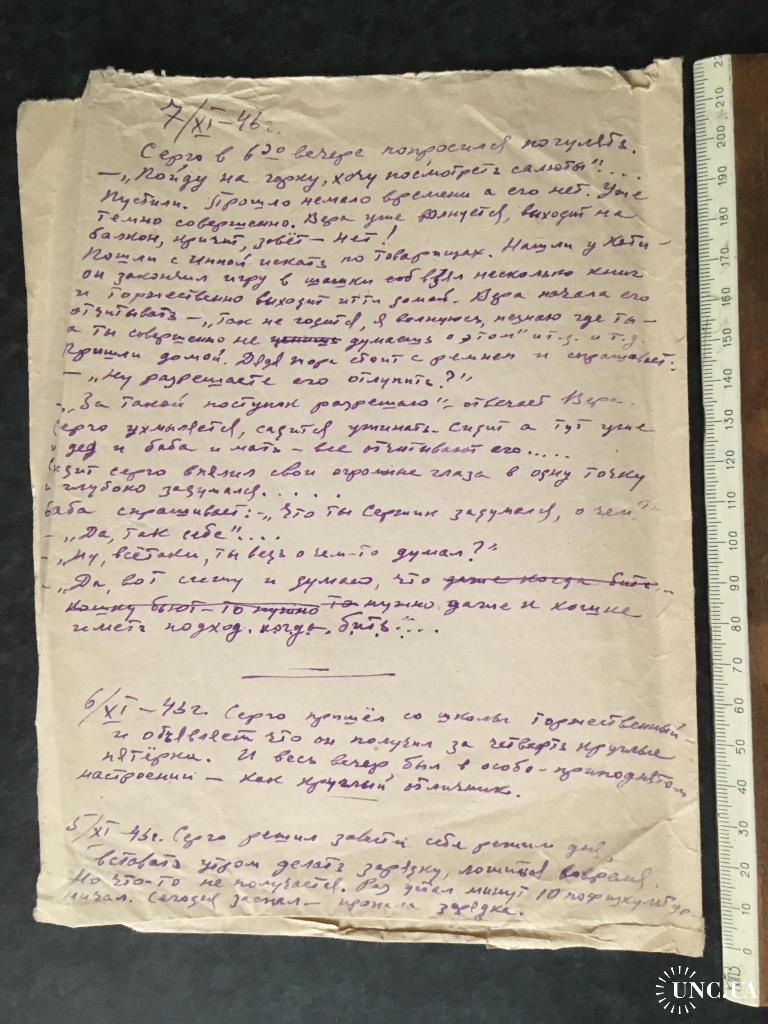 7/XI-43г.
Серго в 6 30 вечера попросился погулять.
— „Пойду на горку, хочу посмотреть салюты"....
Пустили. Прошло немало времени а его нет. Уже
темно совершенно. Вера уже волнуется, выходит на
балкон, кричит, зовёт — нет!
Пошли с Инной искать по товарищах. Нашли у Коти -
он закончил игру в шашки взял несколько книг
и торжественно выходит итти домой. Вера начала его
отчитывать — „Так не годится, я волнуюсь, незнаю где ты —
а ты совершенно не думаешь о этом" и т.д. и т.д.
Пришли домой. Дядя стоит с ремнем и спрашивает:
— „Ну разрешаете его отлупить?"
— „За такой поступок разрешаю" — отвечает Вера.
Серго ухмыляется, садится ужинать. Сидит а тут уже
и дед и баба и мать — все отчитывают его.....
Сидит Серго впялил свои огромные глаза в одну точку
и глубоко задумался......
Баба спрашивает: — „Что ты Сержик задумался, о чем?"
— „Да, так себе"....
— „Ну, всётаки, ты ведь о чем-то думал?"
— „Да, вот сижу и думаю, что даже когда бить
кошку бьют — то нужно то нужно даже к кошке
иметь подход, когда бить"....
6/XI — 43г. Серго пришёл со школы торжественный -
и объявляет что он получил за четверть круглые
пятёрки. И весь вечер был в особо-приподнятом
настроении — как круглый отличник.
5/XI 43г. Серго решил завести себе режим дня,
вставать утром делать зарядку, ложиться вовремя.
Но что-то не получается. Раз встал минут 10 пофизкультур
ничал. Сегодня заспал — пропала зарядка.
0 10 20 30 40 50 60 70 80 90 100 110 120 130 140 150 160 170 180 190 200 210
UNC.UA